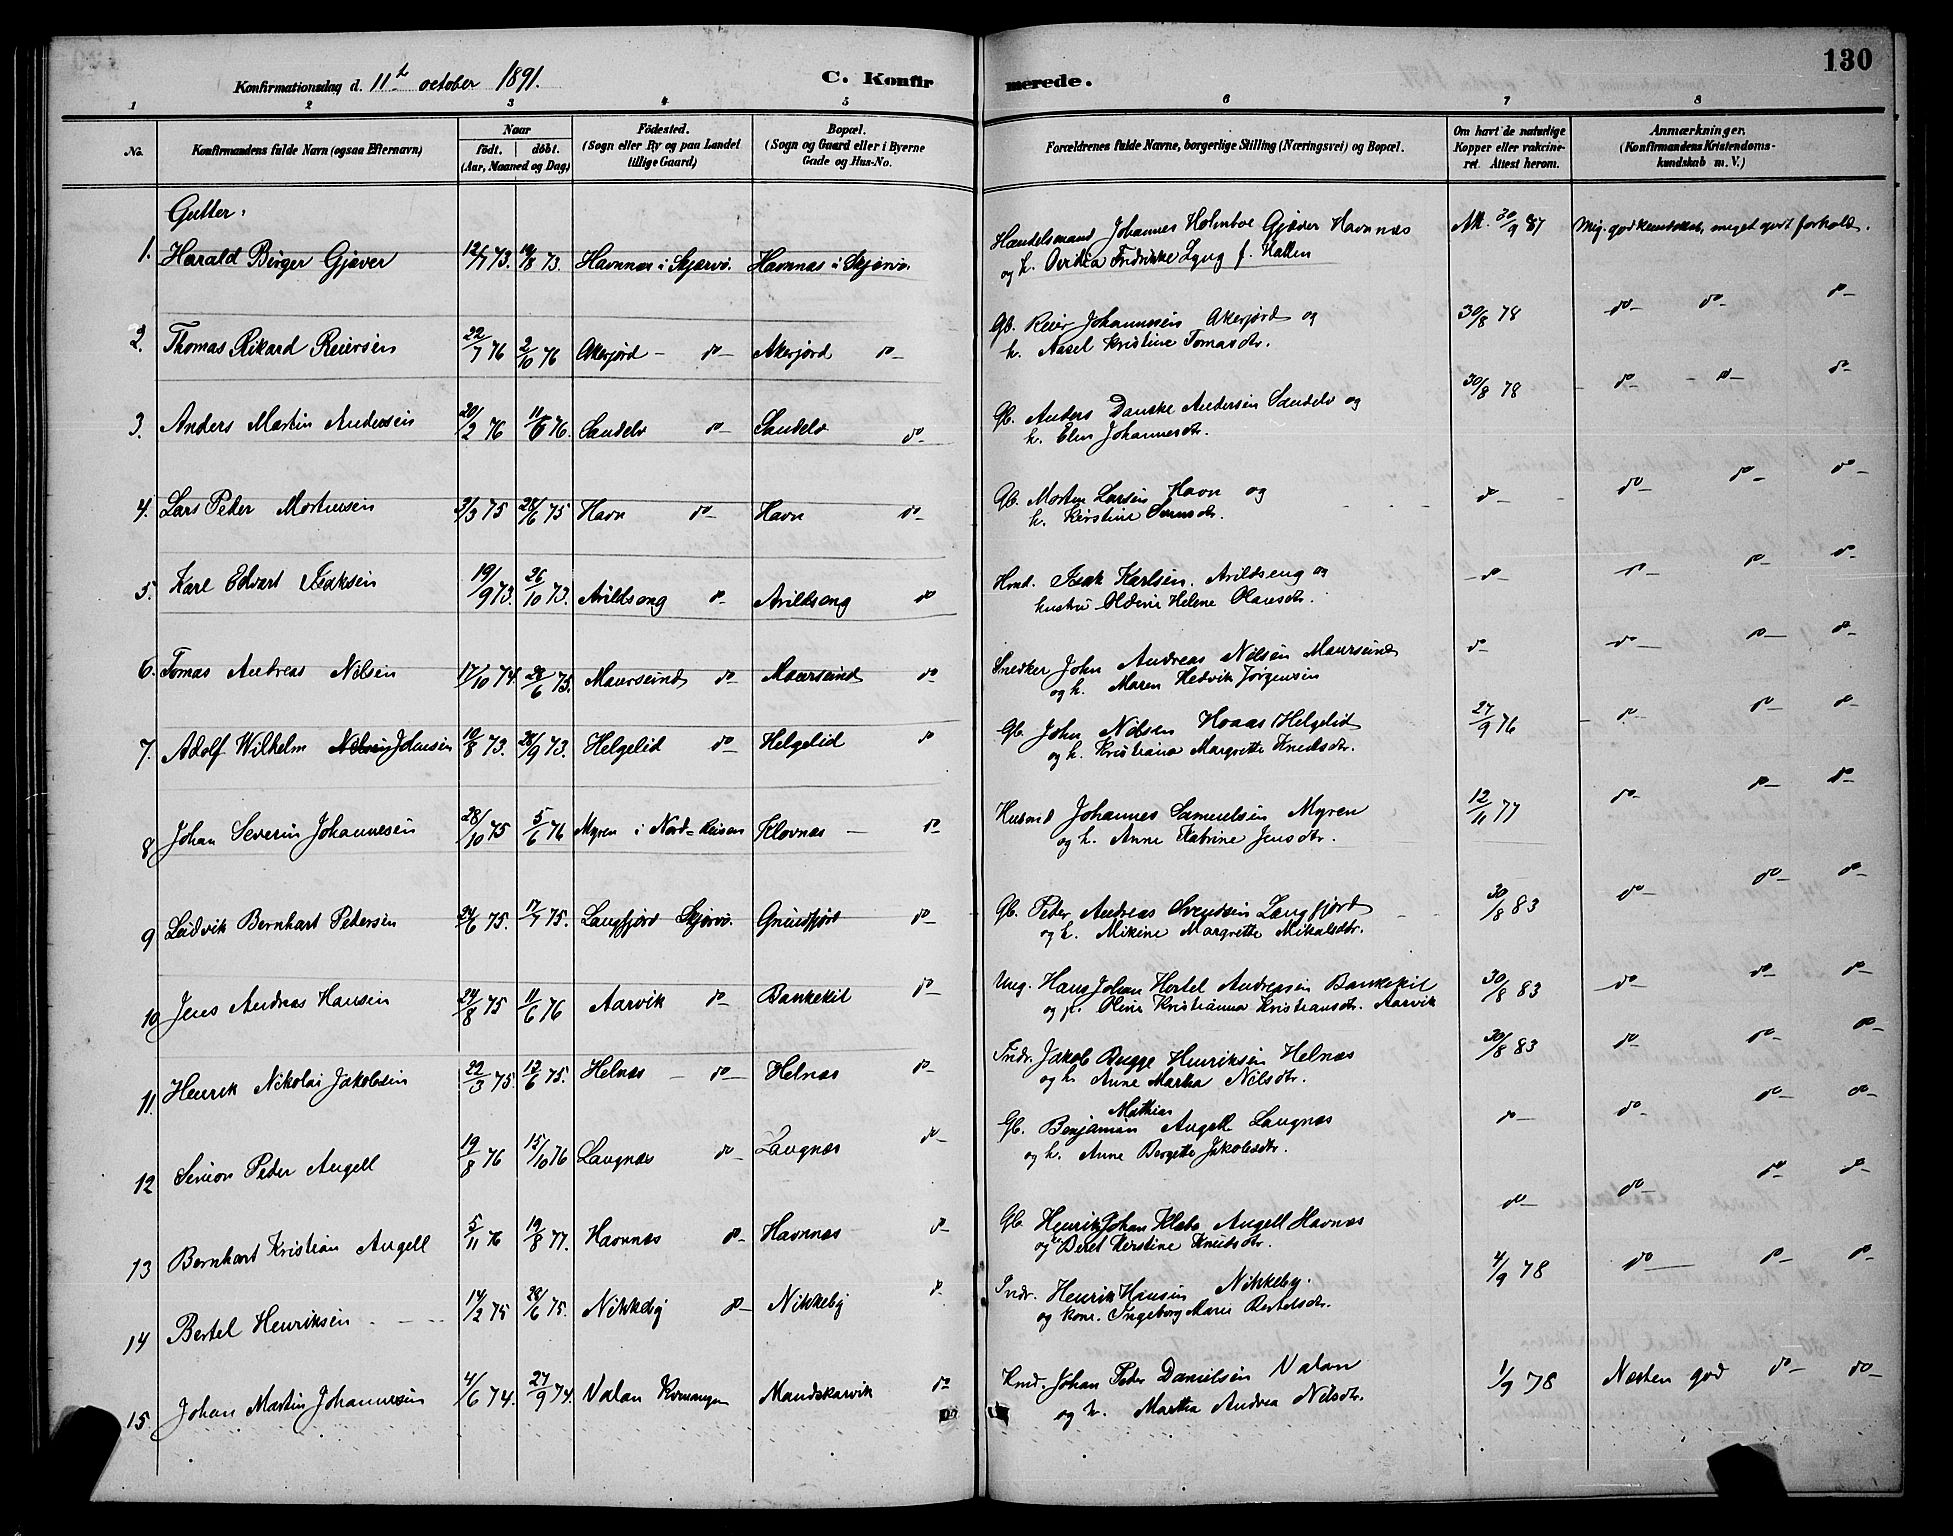 130
Konfirmationsdag d. 11te october 1891.
C. Konfirmerede.
1 2 3 4 5 6 7 8
No. Konfirmandens fulde Navn (ogsaa Efternavn) Naar födt. döbt. (Aar, Maaned og Dag) Födested. (Sogn eller By og paa Landet tillige Gaard) Bopæl. (Sogn og Gaard eller i Byerne Gade og Hus-No. Forældrenes fulde Navne, borgerlige Stilling (Næringsvei) og Bopæl. Om havt de naturlige Kopper eller vakcineret. Attest herom. Anmærkninger. (Konfirmandens Kristendomskundskab m. V.)
Gutter.
1. Harald Birger Gjæver 12/7 73. 19/8 73. Havnnæs i Skjærvø. Havnnæs i Skjærvø. Handelsmand Johannes Holmboe Gjæver Havnnæs
og h. Fredrikke Lyng f. Hallen Att. 30/9 87 Mg. god kundskab, meget godt forhold.
2. Thomas Rikard Reiersen 22/7 76 2/10 76 Akerjord - do- Akerjord do- Gb. Reier Johannesen Akerjord og
h. Aasel Kristine Tomasdtr. 30/8 78 do- do- do-
3. Anders Martin Andersen 20/2 76 11/6 76. Sandelv do- Sandelv do- Gb. Anders Danske Andersen Sandelv og
h. Elen Johannesdtr. 30/8 78 - do- - do- do-
4. Lars Peder Mortensen 3/3 75 28/6 75 Havn do- Havn do- Gb. Morten Larsen Havn og
h. Kirstine do- do- do- do-
5. Karl Edvart Isaksen 19/9 73. 26/10 73. Arildseng do- Arildseng do Hmd. Isak Karlsen. Arildseng og
hustru Oldine Helene Olausdtr. - do- do- do- do-
6. Tomas Andreas Nilsen 17/10 74. 28/6 75. Maursund do- Maursund do- Snedker John Andreas Nilsen Maursund
og h. Maren Hedvik Jørgensen do- do- do- do-
7. Adolf Wilhelm Johnsen 10/8 73. 28/9 73. Helgelid do- Helgelid do- Gb. John Nilsen Hoaas Helgelid
og h. Kristiana Margrethe Knudsdtr. 27/9 76 - do- do- do-
8 Johan Severin Johannesen 28/10 75 5/6 76 Myren i Nord-Reisen Klovnæs - do- Husmd Johannes Samuelsen Myren
og h. Anne Katrine Jensdtr. 12/11 77 do- do- do-
9 Ludvik Bernhart Pedersen 24/6 75. 17/7 75. Langfjord Skjervø. Grundfjord do- Gb. Peder Andreas Svendsen Langfjord
og h. Mikine Margrethe Mikalsdtr. 30/8 83 do- do- do-
10 Jens Andreas Hansen 24/8 75 11/6 76 Aarvik do- Bankekil do- Ung. Hans Johan Hortel Andreasen Bankekil
og p. Oline Kristianna Kristiansdtr. Aarvik 30/8 83 do- do- do-
11. Henrik Nikolai Jakobsen 22/3 75. 13/6 75. Helnæs - do- Helnæs do- Indr. Jakob Bugge Henriksen Helnæs
og h. Anne Martha Nilsdtr. 30/8 83 do- do- do-
12 Simon Peder Angell 19/8 76 15/10 76 Langnæs do- Langnæs do- Gb. Benjamin Mathias Angell Langnæs
og h. Anne Bergette Jakobsdtr. do- do- do- do-
13 Bernhart Kristian Angell 5/11 76 19/8 77. Havnnæs do- Havnnæs do- Gb. Henrik Johan Klæbo Angell Havnæs
og Beret Kerstine Knudsdtr. do- do- do- do-
14 Bertel Henriksen 14/2 75 28/6 75. Nikkeby do- Nikkeby do- Indr. Henrik Hansen Nikkeby.
og kone. Ingeborg Marie Bertelsdtr. 4/9 78 do- do- do-
15. Johan Martin Johannesen 4/6 74. 27/9 74. Valan Kvænangen Mandskarvik do- Hmd. Johan Peder Danielsen Valan
og h. Martha Andrea Nilsdtr. 1/9 78 Næsten god do- do-